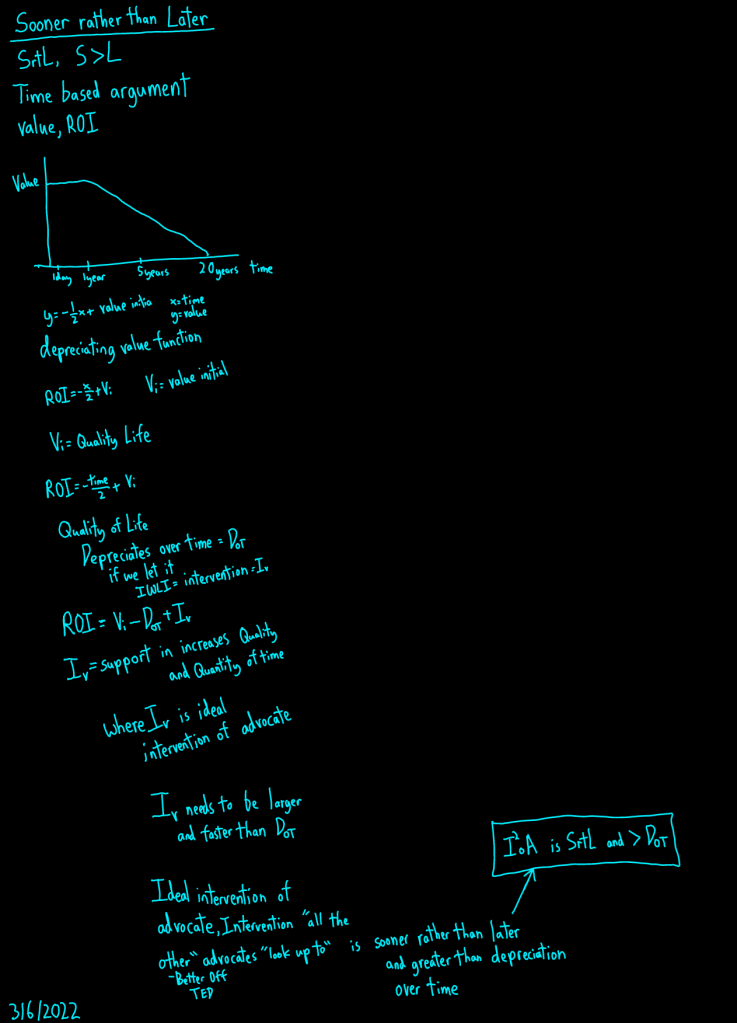 Sooner rather than Later
SrtL, S>L
Time based argument
value, ROI
Value
1day 1year 5years 20years time
y=-1/2x+ value initia x=time
y=value
depreciating value function
ROI=-x/2+Vi Vi= value initial
Vi= Quality Life
ROI=-time/2+ Vi
Quality of Life
Depreciates over time = DOT
if we let it
IWLI= intervention=Iv
ROI= Vi-DOT+Iv
Iv=support in increases Quality
and Quantity of time
where Iv is ideal
intervention of advocate
Iv needs to be larger
and faster than DOT
I²oA is SrtL and > DOT
Ideal intervention of
advocate, Intervention "all the
other" advocates "look up to" is sooner rather than later
-Better Off
TED
and greater than depreciation
over time
3/6/2022